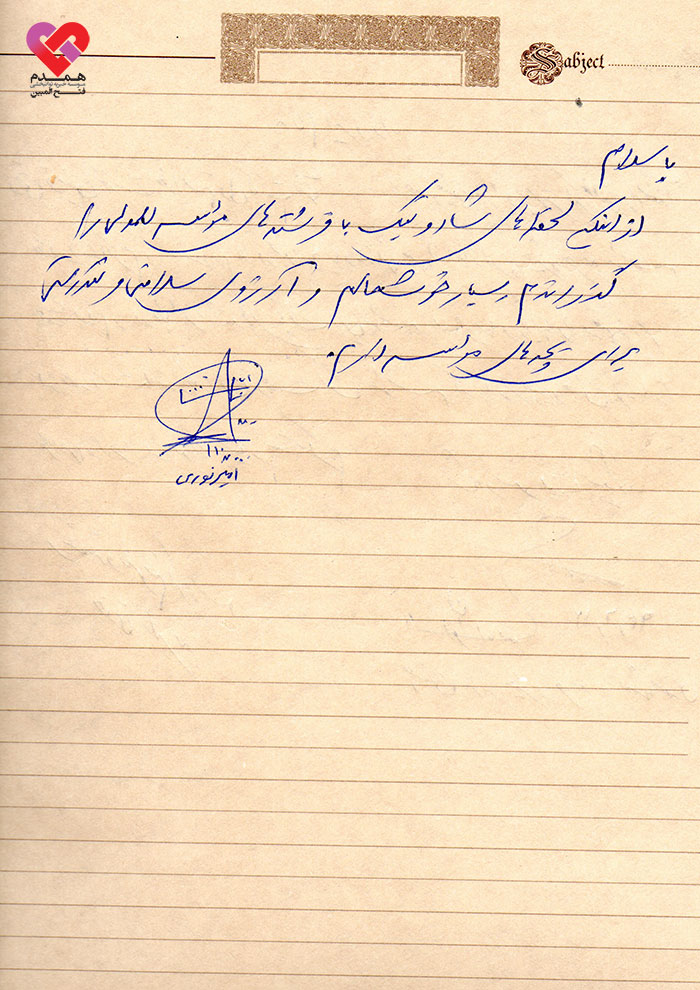 همدم
موسسه خیریه توانبخشی
فتح المبین
Subject
با سلام
از اینکه لحظه‌های شاد و نیک با فرشته‌های مؤسسه را
گذراندم بسیار خوشحالم و آرزوی سلامتی و تندرستی
برای بچه‌های مؤسسه دارم.
امیر نوری